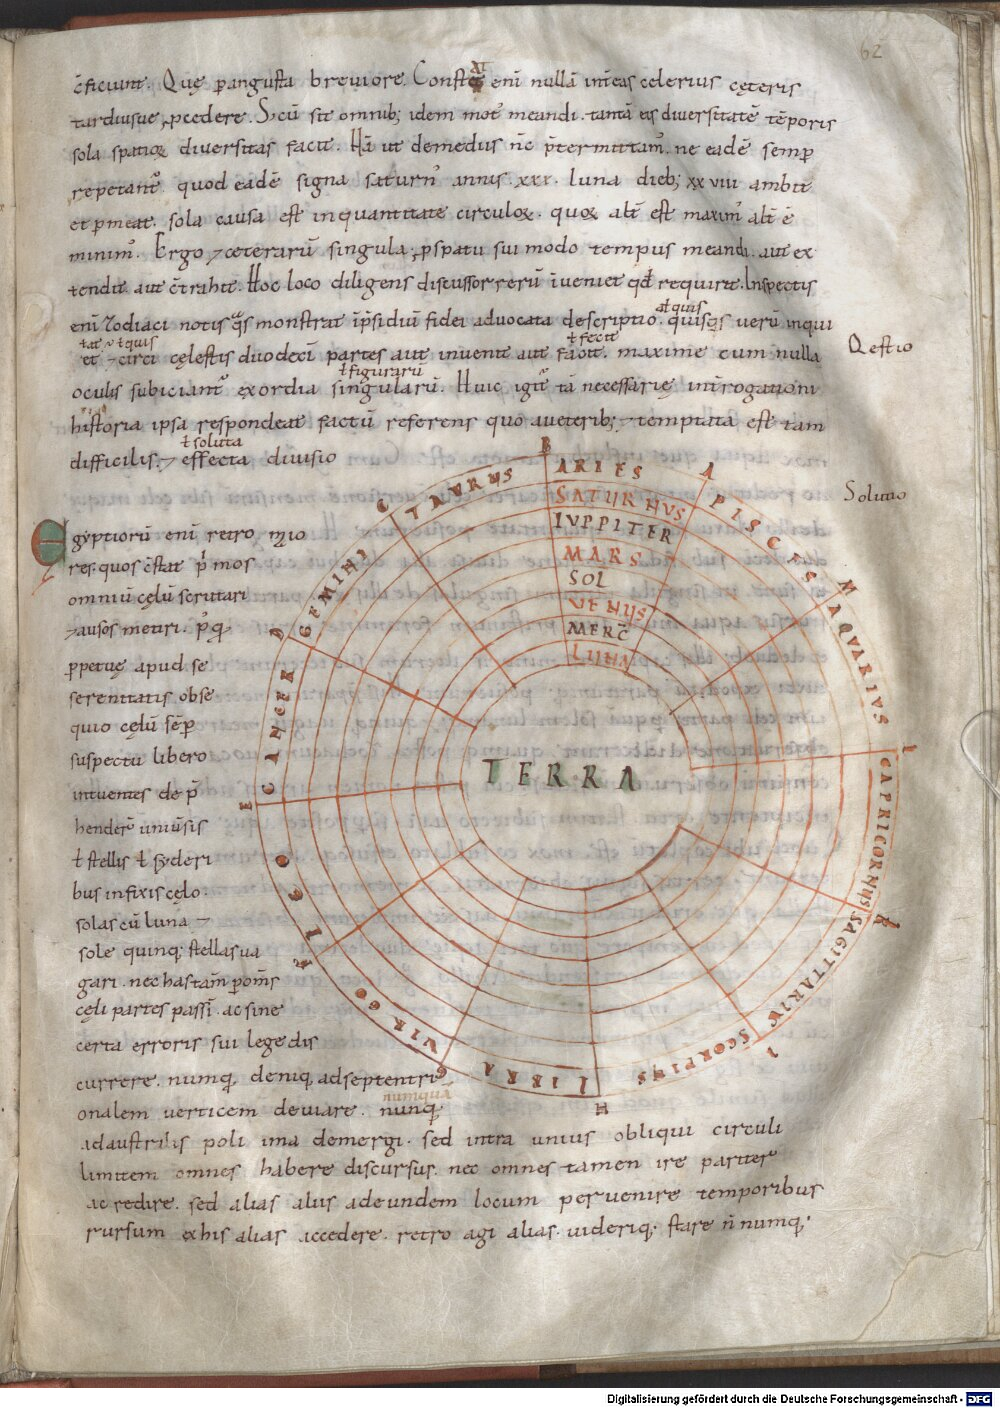 62
c̄ficiunt. Quę p angusta breviore. Const&& eni nullā int̄ eas celerius cęteris
tardiusue ꝓcedere. S; cū sit omnib; idem mot᷒ meandi. tantā eis diversitatē tēporis
sola spatioꝝ diversitas facit. Hā ut demedus n̄c p̄termittam᷒. ne eadē semp
repetant᷒. quod eadē signa saturn᷒ annis .xxx. luna dieb; xxviii ambit
et pmeat. sola causa est in quantitate circuloꝝ. quoꝝ alt̄ est maxim᷒ alt̄ ē
minim᷒. Ergo ⁊ ceterarū singula; ꝓ spatii sui modo tempus meandi. aut ex
tendit aut c̄trahit. Hoc loco diligens discussor rerū inveniet qđ requirat. Inspectis
ƚ quis
eni Zodiaci notis q̄s monstrat ip̄si diui fidei advocata descriptio. quisq;s verū inqui
ƚ fecit
et circi cęlestis duodeci partes aut invenit aut facit. maxime cum nulla
Qestio
ƚ figurarū
oculis subiciant᷒ exordia singularū. Huic igit᷒ tā necessarię int̄rogationi
historia ipsa respondeat factū referens quo a veterib; ⁊ temptata est tam
ƚ soluta
difficilis. ⁊ effecta divisio
Solutio
Egyptiorū eni retro mio
res. quos c̄stat p̄mos
omniū cęlū scrutari
⁊ ausos metiri. p᷒q̄
ꝑpetuę apud se
serenitatis obse
quio cęlū sēp
suspectu libero
intuentes de p̄
hender᷒ uniu̅sis
ƚ stellis ƚ syderi
bus infixis cęlo.
solas cū luna ⁊
sole quinq; stellas ua
gari. nec has tam̄ p om̄s
cęli partes passi. ac sine
certa erroris sui lege dis
currere. numq̄ deniq; ad septentri
onalem verticem deviare.
numqua
nunq̄
ad australis poli ima demergi. sed intra unius obliqui circuli
limitem omnes habere discursus. nec omnes tamen ire pariter
ac redire. sed alias aliis ad eundem locum pervenire temporibus
rursum ex his alias accedere. retro agi alias. videriq; stare n̄numq̄.
B
ARIES
A
PISCES
M
AQUARIUS
L
CAPRICORNUS
K
SAGITTARIUS
I
SCORPIUS
H
LIBRA
G
VIRGO
F
LEO
E
CANCER
D
GEMINI
C
TAURUS
SATURNUS
IUPPITER
MARS
SOL
VENUS
MERC̄
LUNA
TERRA
Digitalisierung gefördert durch die Deutsche Forschungsgemeinschaft - DFG